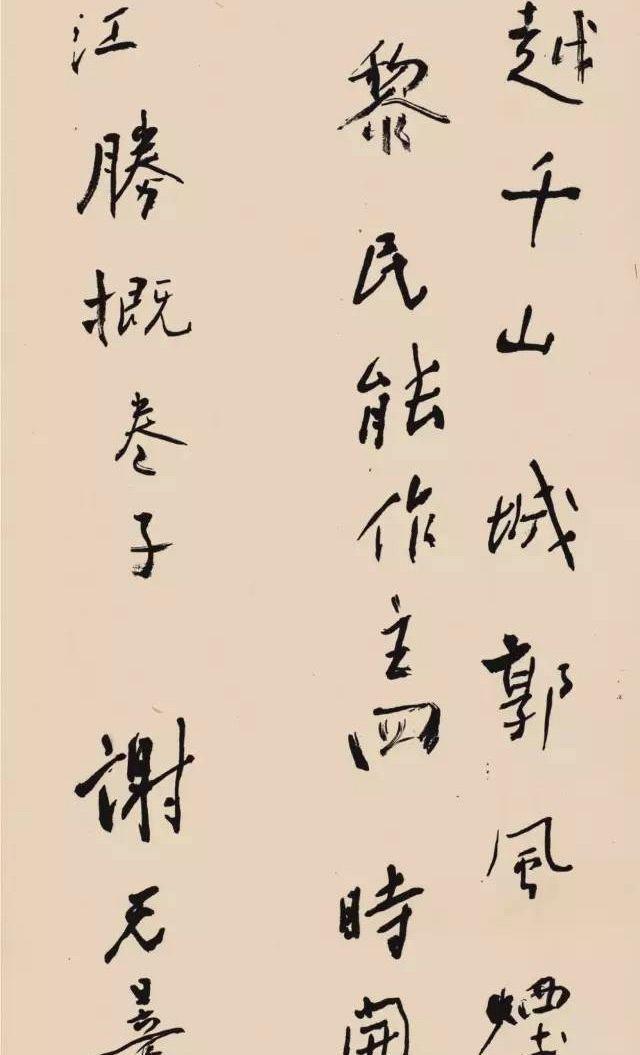 越千山城郭風煙
黎民能作主四時開
江勝概卷子 謝无量